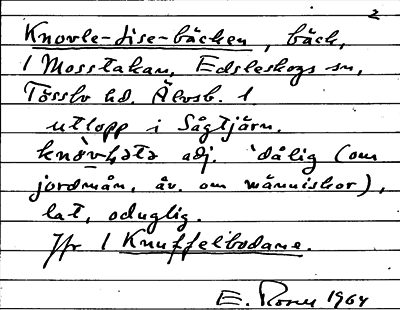 2
Knovle-Lise-bäcken, bäck,
i Mosstakan, Edsleskogs sn,
Tössbo hd. Älvsb. l
utlopp i Sågtjärn.
adj. 'dålig (om
jordmån, äv. om människor),
lat, oduglig.
Jfr l Knuffelbodane.
E. 1964